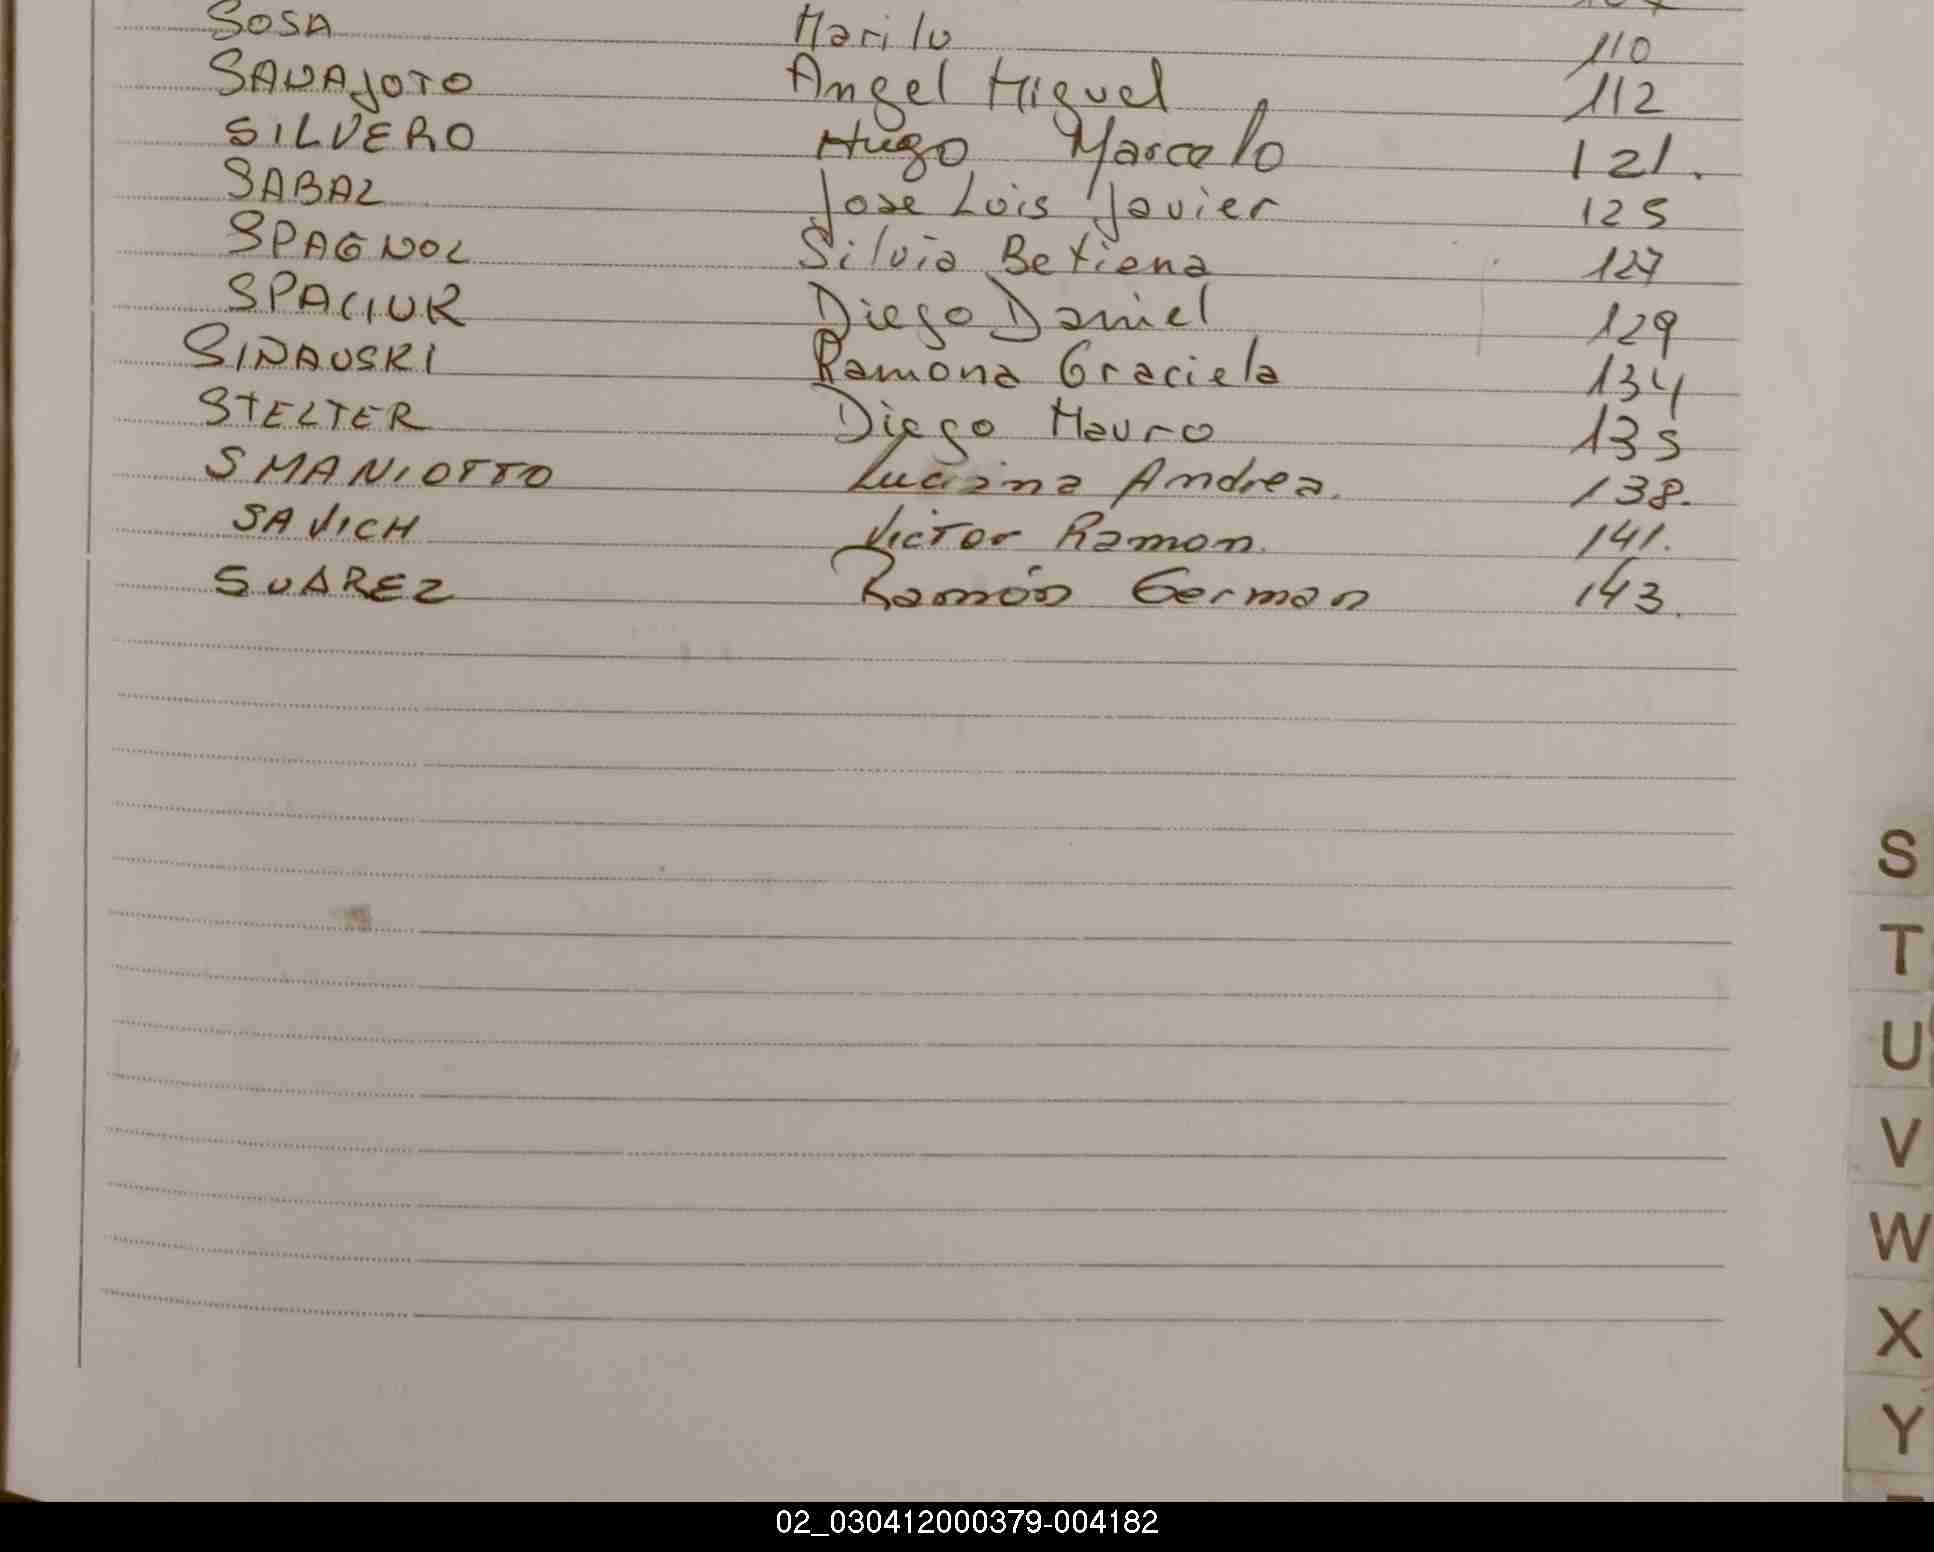 SOSA Marilu 110
SANAJOTO Angel Miguel 112
SILVERO Hugo Marcelo 121.
SABAL Jose Luis Javier 125
SPAGNOL Silvia Betiana 127
SPACIUR Diego Daniel 129
SINAUSKI Ramona Graciela 134
STELTER Diego Mauro 135
SMANIOTTO Luciana Andrea. 138.
SAVICH Victor Ramon. 141.
SUAREZ Ramón German 143.
S
T
U
V
W
X
Y
02_030412000379-004182